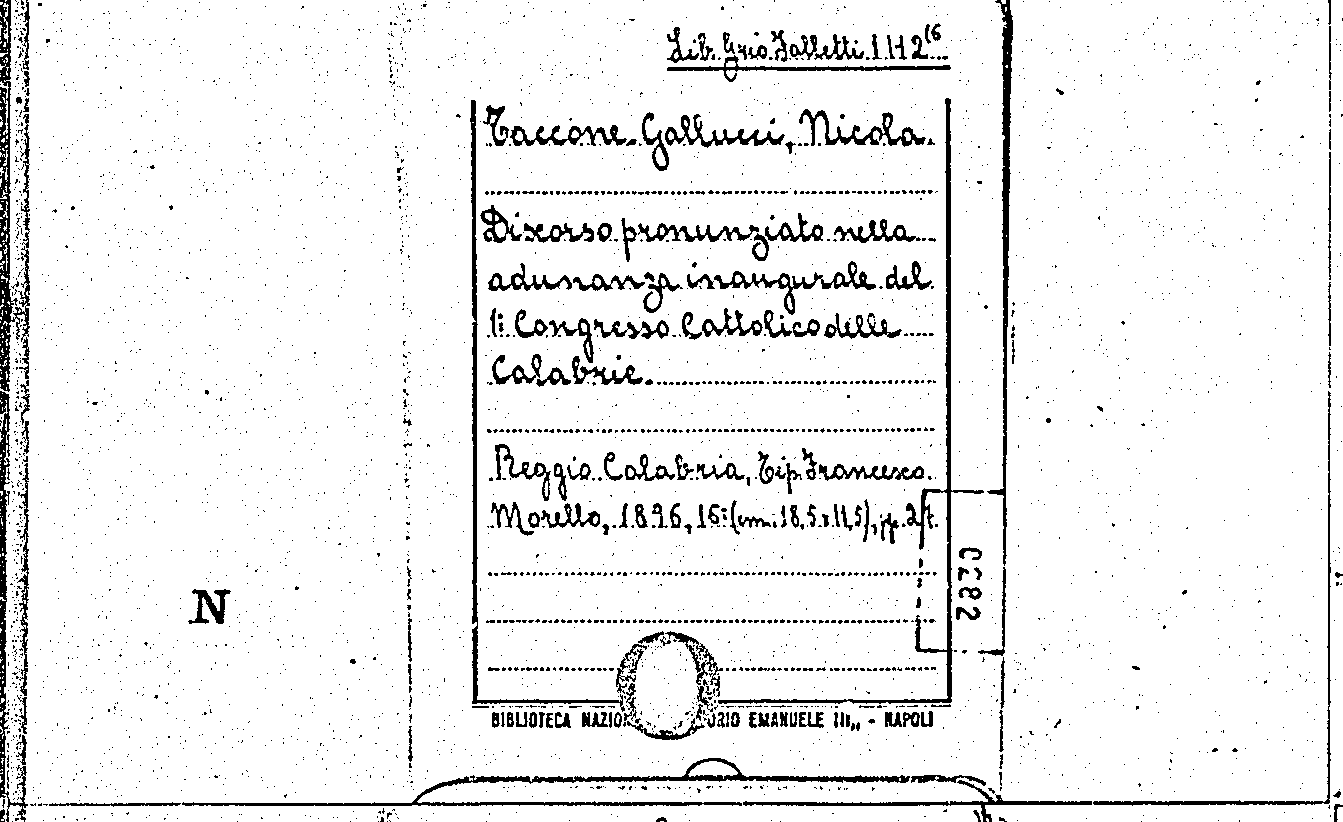 Lib. Grio Falletti I 112 (6
Taccone-Gallucci, Nicola.
Discorso pronunziato nella
adunanza inaugurale del
1º Congresso Cattolico delle
Calabrie.
Reggio Calabria, Tip. Francesco
Morello, 1896, 16º (cm. 18,5 x 11,5), pp.
C282
N
BIBLIOTECA EMANUELE III,, - NAPOLI